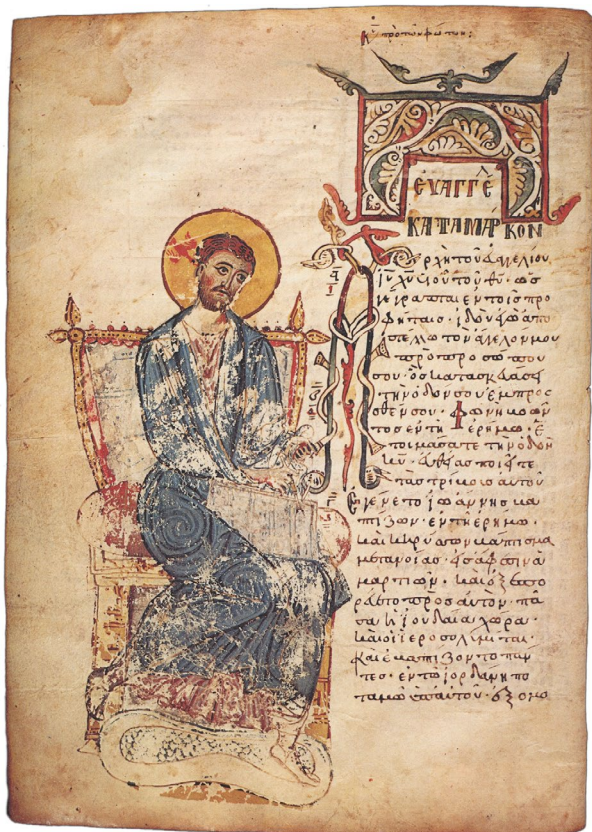 πρὸ τῶν φώτων:
ΕΥΑΓΓΕΛ
ΚΑΤΑ ΜΑΡΚΟΝ
Ἀρχὴ τοῦ εὐαγγελίου
ἰυ χυ υἱοῦ τοῦ θυ · ὡς
γέγραπται ἐν τοῖς προ
φήταις · ἰδοὺ ἐγὼ ἀπο
στέλλω τὸν ἄγγελόν μου
πρὸ προσώπου
σου · ὃς κατασκευάσει
τὴν ὁδόν σου ἔμπροσ
θέν σου · Φωνὴ βοῶν
τος ἐν τῇ ἐρήμω · ἑ
τοιμάσατε τὴν ὁδὸν
κυ · εὐθείας ποιεῖτε
τὰς τρίβους αὐτοῦ
Ἐγένετο ἰωάννης βα
πτίζων · ἐν τῇ ἐρήμω ·
καὶ κηρύσσων βάπτισμα
μετανοίας · εἰς ἄφεσιν ἁ
μαρτιῶν · καὶ ἐξεπο
ρεύετο πρὸς αὐτὸν · πᾶ
σα ἡ ἰουδαία χώρα ·
καὶ οἱ ἱεροσολυμῖται ·
καὶ ἐβαπτίζοντο πάν
τες · ἐν τῶ ἰορδάνη πο
ταμῶ ὑπ' αὐτοῦ · ἐξομο